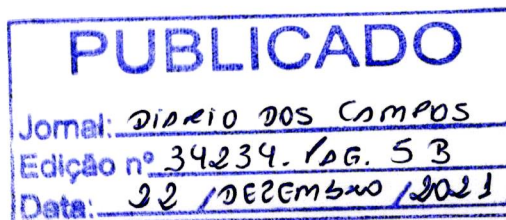 PUBLICADO
Jornal: DIARIO DOS CAMPOS
Edição nº 34234. PAG. 5 B
Data: 22 / DEZEMBRO / 2021